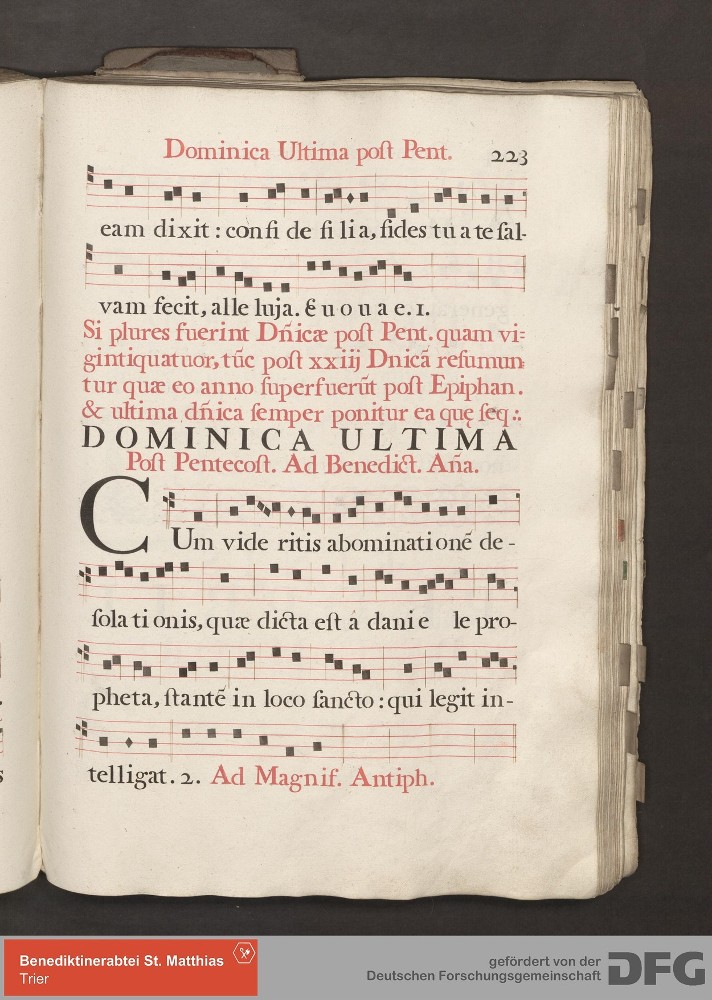 Dominica Ultima poſt Pent. 223
eam dixit : con fi de fi li a, fides tu a te ſal-
vam fecit, alle luja. € u o u a e. 1.
Si plures fuerint Dñicæ poſt Pent. quam vi=
gintiquatuor, tũc poſt xxiij Dnicã reſumun=
tur quæ eo anno ſuperfuerũt poſt Epiphan.
& ultima dñica ſemper ponitur ea quę ſeq∴
DOMINICA ULTIMA
Poſt Pentecoſt. Ad Benedict. Aña.
CUm vide ritis abominationē de-
ſola ti onis, quæ dicta eſt á danie le pro-
pheta, ſtantē in loco ſancto : qui legit in-
telligat. 2. Ad Magnif. Antiph.
Benediktinerabtei St. Matthias
Trier
gefördert von der
Deutschen Forschungsgemeinschaft DFG